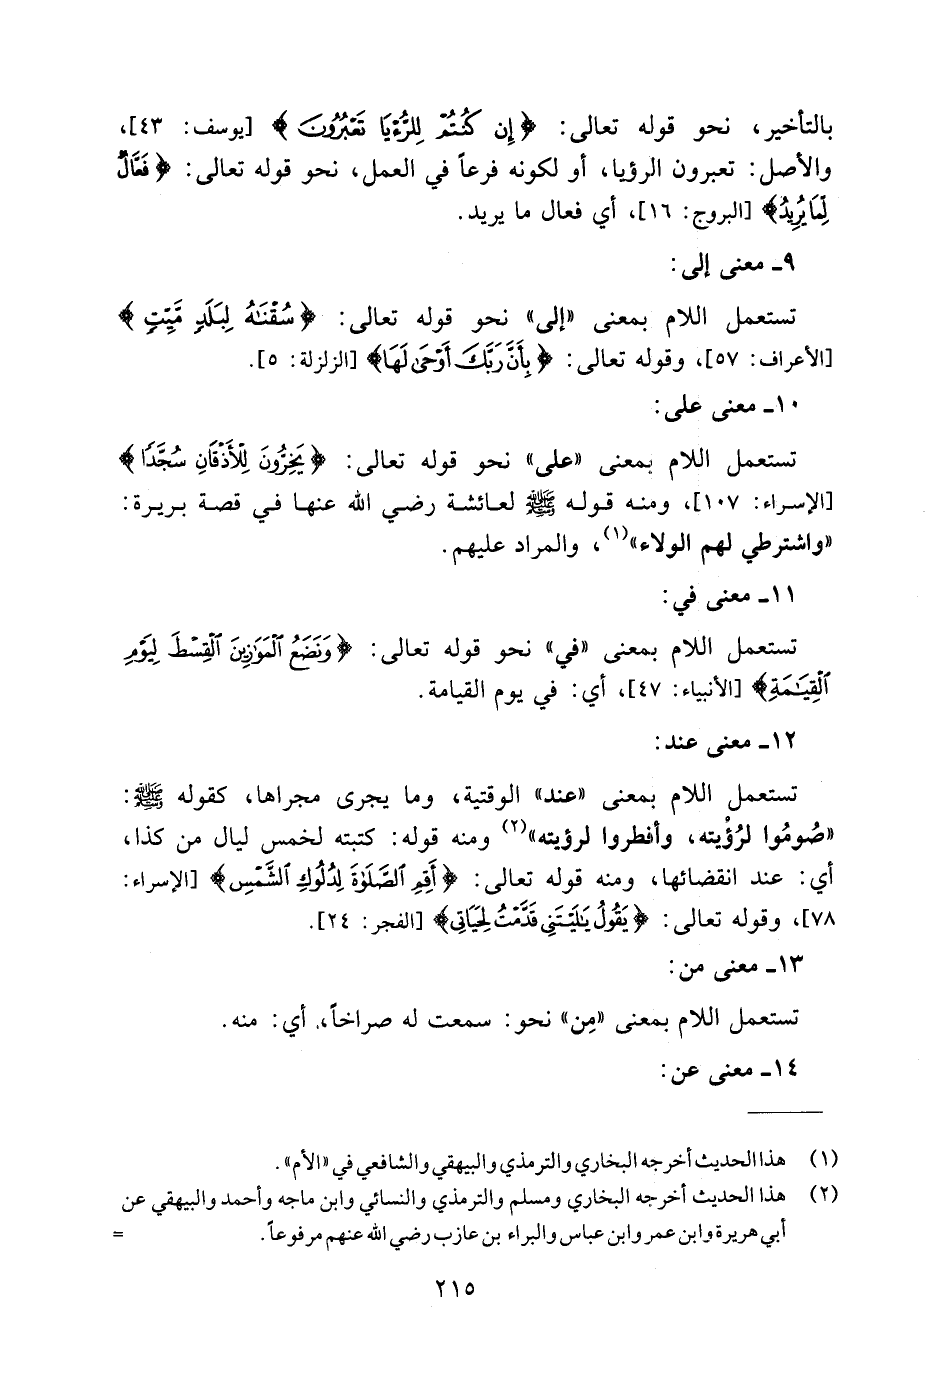 بالتأخير، نحو قوله تعالى: ﴿إِن كُنتُمْ لِلرُّءْيَا تَعْبُرُونَ﴾ [يوسف: ٤٣]،
والأصل: تعبرون الرؤيا، أو لكونه فرعاً في العمل، نحو قوله تعالى: ﴿فَعَّالٌ
لِّمَا يُرِيدُ﴾ [البروج: ١٦]، أي فعال ما يريد.
٩ـ معنى إلى:
تستعمل اللام بمعنى «إلى» نحو قوله تعالى: ﴿سُقْنَٰهُ لِبَلَدٍ مَّيِّتٍ﴾
[الأعراف: ٥٧]، وقوله تعالى: ﴿بِأَنَّ رَبَّكَ أَوْحَىٰ لَهَا﴾ [الزلزلة: ٥].
١٠ـ معنى على:
تستعمل اللام بمعنى «على» نحو قوله تعالى: ﴿يَخِرُّونَ لِلْأَذْقَانِ سُجَّدًا﴾
[الإسراء: ١٠٧]، ومنه قوله ﷺ لعائشة رضي الله عنها في قصة بريرة:
«واشترطي لهم الولاء»(١)، والمراد عليهم.
١١ـ معنى في:
تستعمل اللام بمعنى «في» نحو قوله تعالى: ﴿وَنَضَعُ ٱلْمَوَٰزِينَ ٱلْقِسْطَ لِيَوْمِ
ٱلْقِيَٰمَةِ﴾ [الأنبياء: ٤٧]، أي: في يوم القيامة.
١٢ـ معنى عند:
تستعمل اللام بمعنى «عند» الوقتية، وما يجرى مجراها، كقوله ﷺ:
«صُومُوا لرُؤْيته، وأفطروا لرؤيته»(٢) ومنه قوله: كتبته لخمس ليال من كذا،
أي: عند انقضائها، ومنه قوله تعالى: ﴿أَقِمِ ٱلصَّلَوٰةَ لِدُلُوكِ ٱلشَّمْسِ﴾ [الإسراء:
٧٨]، وقوله تعالى: ﴿يَقُولُ يَٰلَيْتَنِى قَدَّمْتُ لِحَيَاتِى﴾ [الفجر: ٢٤].
١٣ـ معنى من:
تستعمل اللام بمعنى «مِن» نحو: سمعت له صراخاً، أي: منه.
١٤ـ معنى عن:
(١) هذا الحديث أخرجه البخاري والترمذي والبيهقي والشافعي في «الأم».
(٢) هذا الحديث أخرجه البخاري ومسلم والترمذي والنسائي وابن ماجه وأحمد والبيهقي عن
أبي هريرة وابن عمر وابن عباس والبراء بن عازب رضي الله عنهم مرفوعاً. =
٢١٥